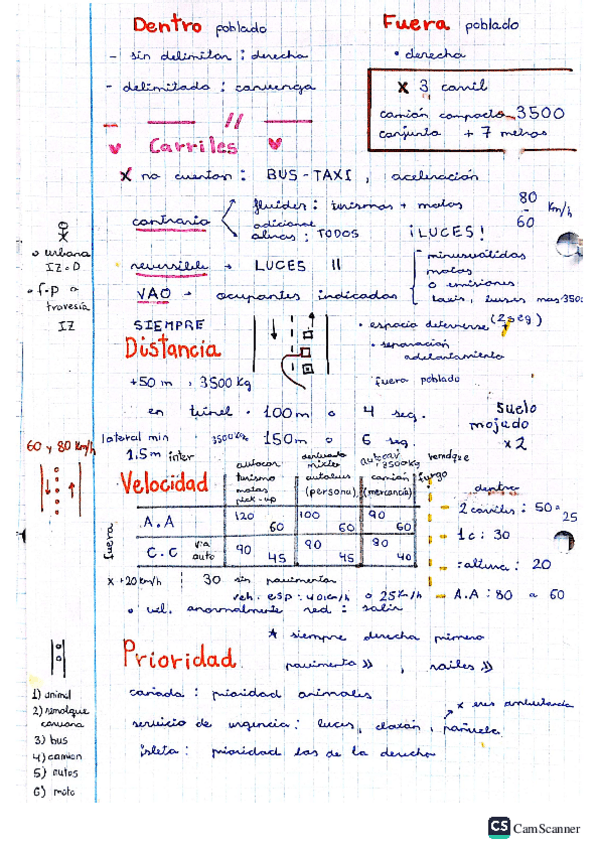 Dentro poblado
- sin delimitar : derecha
- delimitado : convenga
Fuera poblado
• derecha
x 3 carril
camión compacto 3500
conjunto + 7 metros
♥ Carriles ♥
x no cuentan : BUS-TAXI , aceleración
contrario
fluidez : turismos + motos 80 - 60 Km/h
adicional
aliras : TODOS ¡LUCES!
reversible → LUCES II
VAO → ocupantes indicados
- minusválidos
motos
o emisiones
taxis, buses mas 350
o urbana
IZ o D
• f.p o
travesía
IZ
SIEMPRE
Distancia
• espacio detenerse (2seg)
• separación
adelantamiento
+50 m , 3500 Kg
fuera poblado
en túnel · 100m o 4 seg.
3500kg 150m o 6 seg.
suelo
mojado
x2
lateral min
1.5m inter
60 y 80 Km/h
Velocidad
autocar
turismo
motos
pick-up
derivado
mixto
autobus
(persona)
3500kg
camión
(mercancía)
remolque
furgo
fuera
A.A 120 60 100 60 90 60
C.C via auto 90 45 90 45 80 40
x +20 km/h 30 sin pavimentar
veh. esp : 40 km/h o 25 K/h
• vel. anormalmente red : salir
dentro
- 2 carriles : 50 o 25
- 1c : 30
- =altura : 20
- A.A : 80 o 60
Prioridad
* siempre derecha primero
pavimento >> , raíles >>
cañada : prioridad animales
servicio de urgencia : luces, claxon, pañuelo
x eres ambulancia
isleta : prioridad los de la derecha
1) animal
2) remolque
caravana
3) bus
4) camion
5) autos
6) moto
CS CamScanner